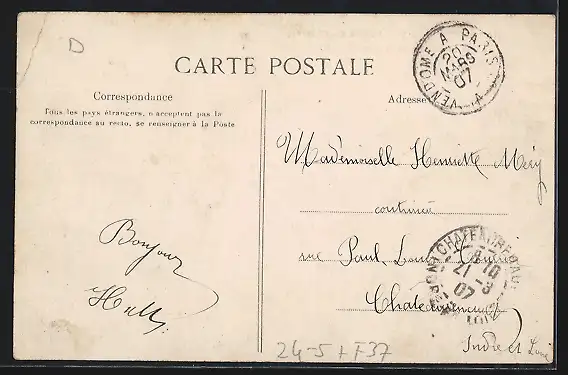 D
VENDOME A PARIS
20
MARS
07
CARTE POSTALE
Correspondance
Tous les pays étrangers, n'acceptent pas la
correspondance au recto, se renseigner à la Poste
Adresse
Mademoiselle Henriette Méry
couturière
rue Paul Louis Courier
Chateaurenault
Indre et Loire
CHATEAURENAULT
21 -3
07
Bonjour
24-5 + F37